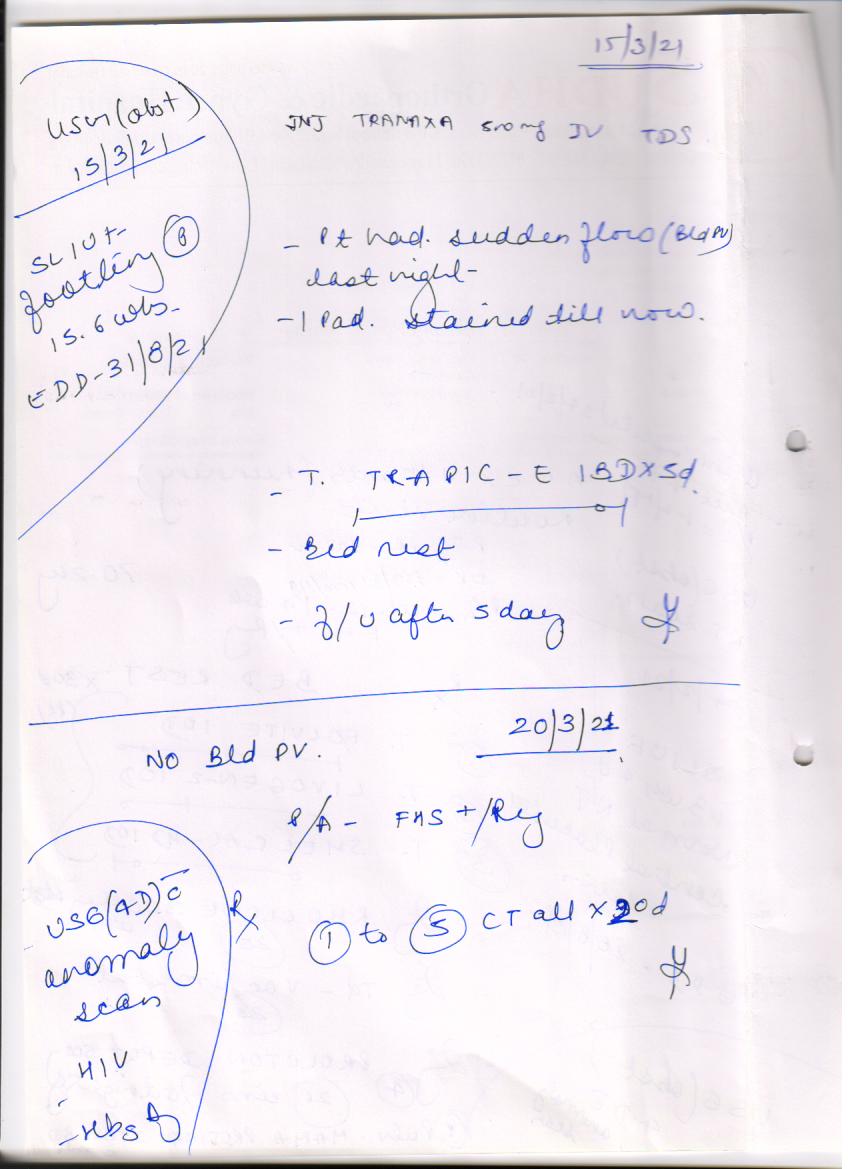 15/3/21
USG (obst)
15/3/21
INJ TRANAXA 500mg IV TDS.
SLIUF
footling (B)
15.6 wks-
EDD-31/8/21
- Pt had. sudden flow (Bld PV)
last night-
- 1 Pad. stained till now.
- T. TRAPIC-E 1BDX5d.
- Bed rest
- f/u after 5 day
20/3/21
NO Bld PV.
P/A - FHS +/Reg
USG(4D) c̄
anomaly
scan
HIV
- HbsAg
Rx
(1) to (5) CT all x 20d